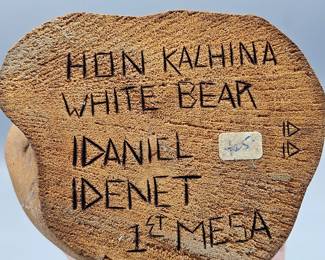 HON KALHINA
WHITE BEAR
IDANIEL
IDENET
1ST MESA
ID
ID